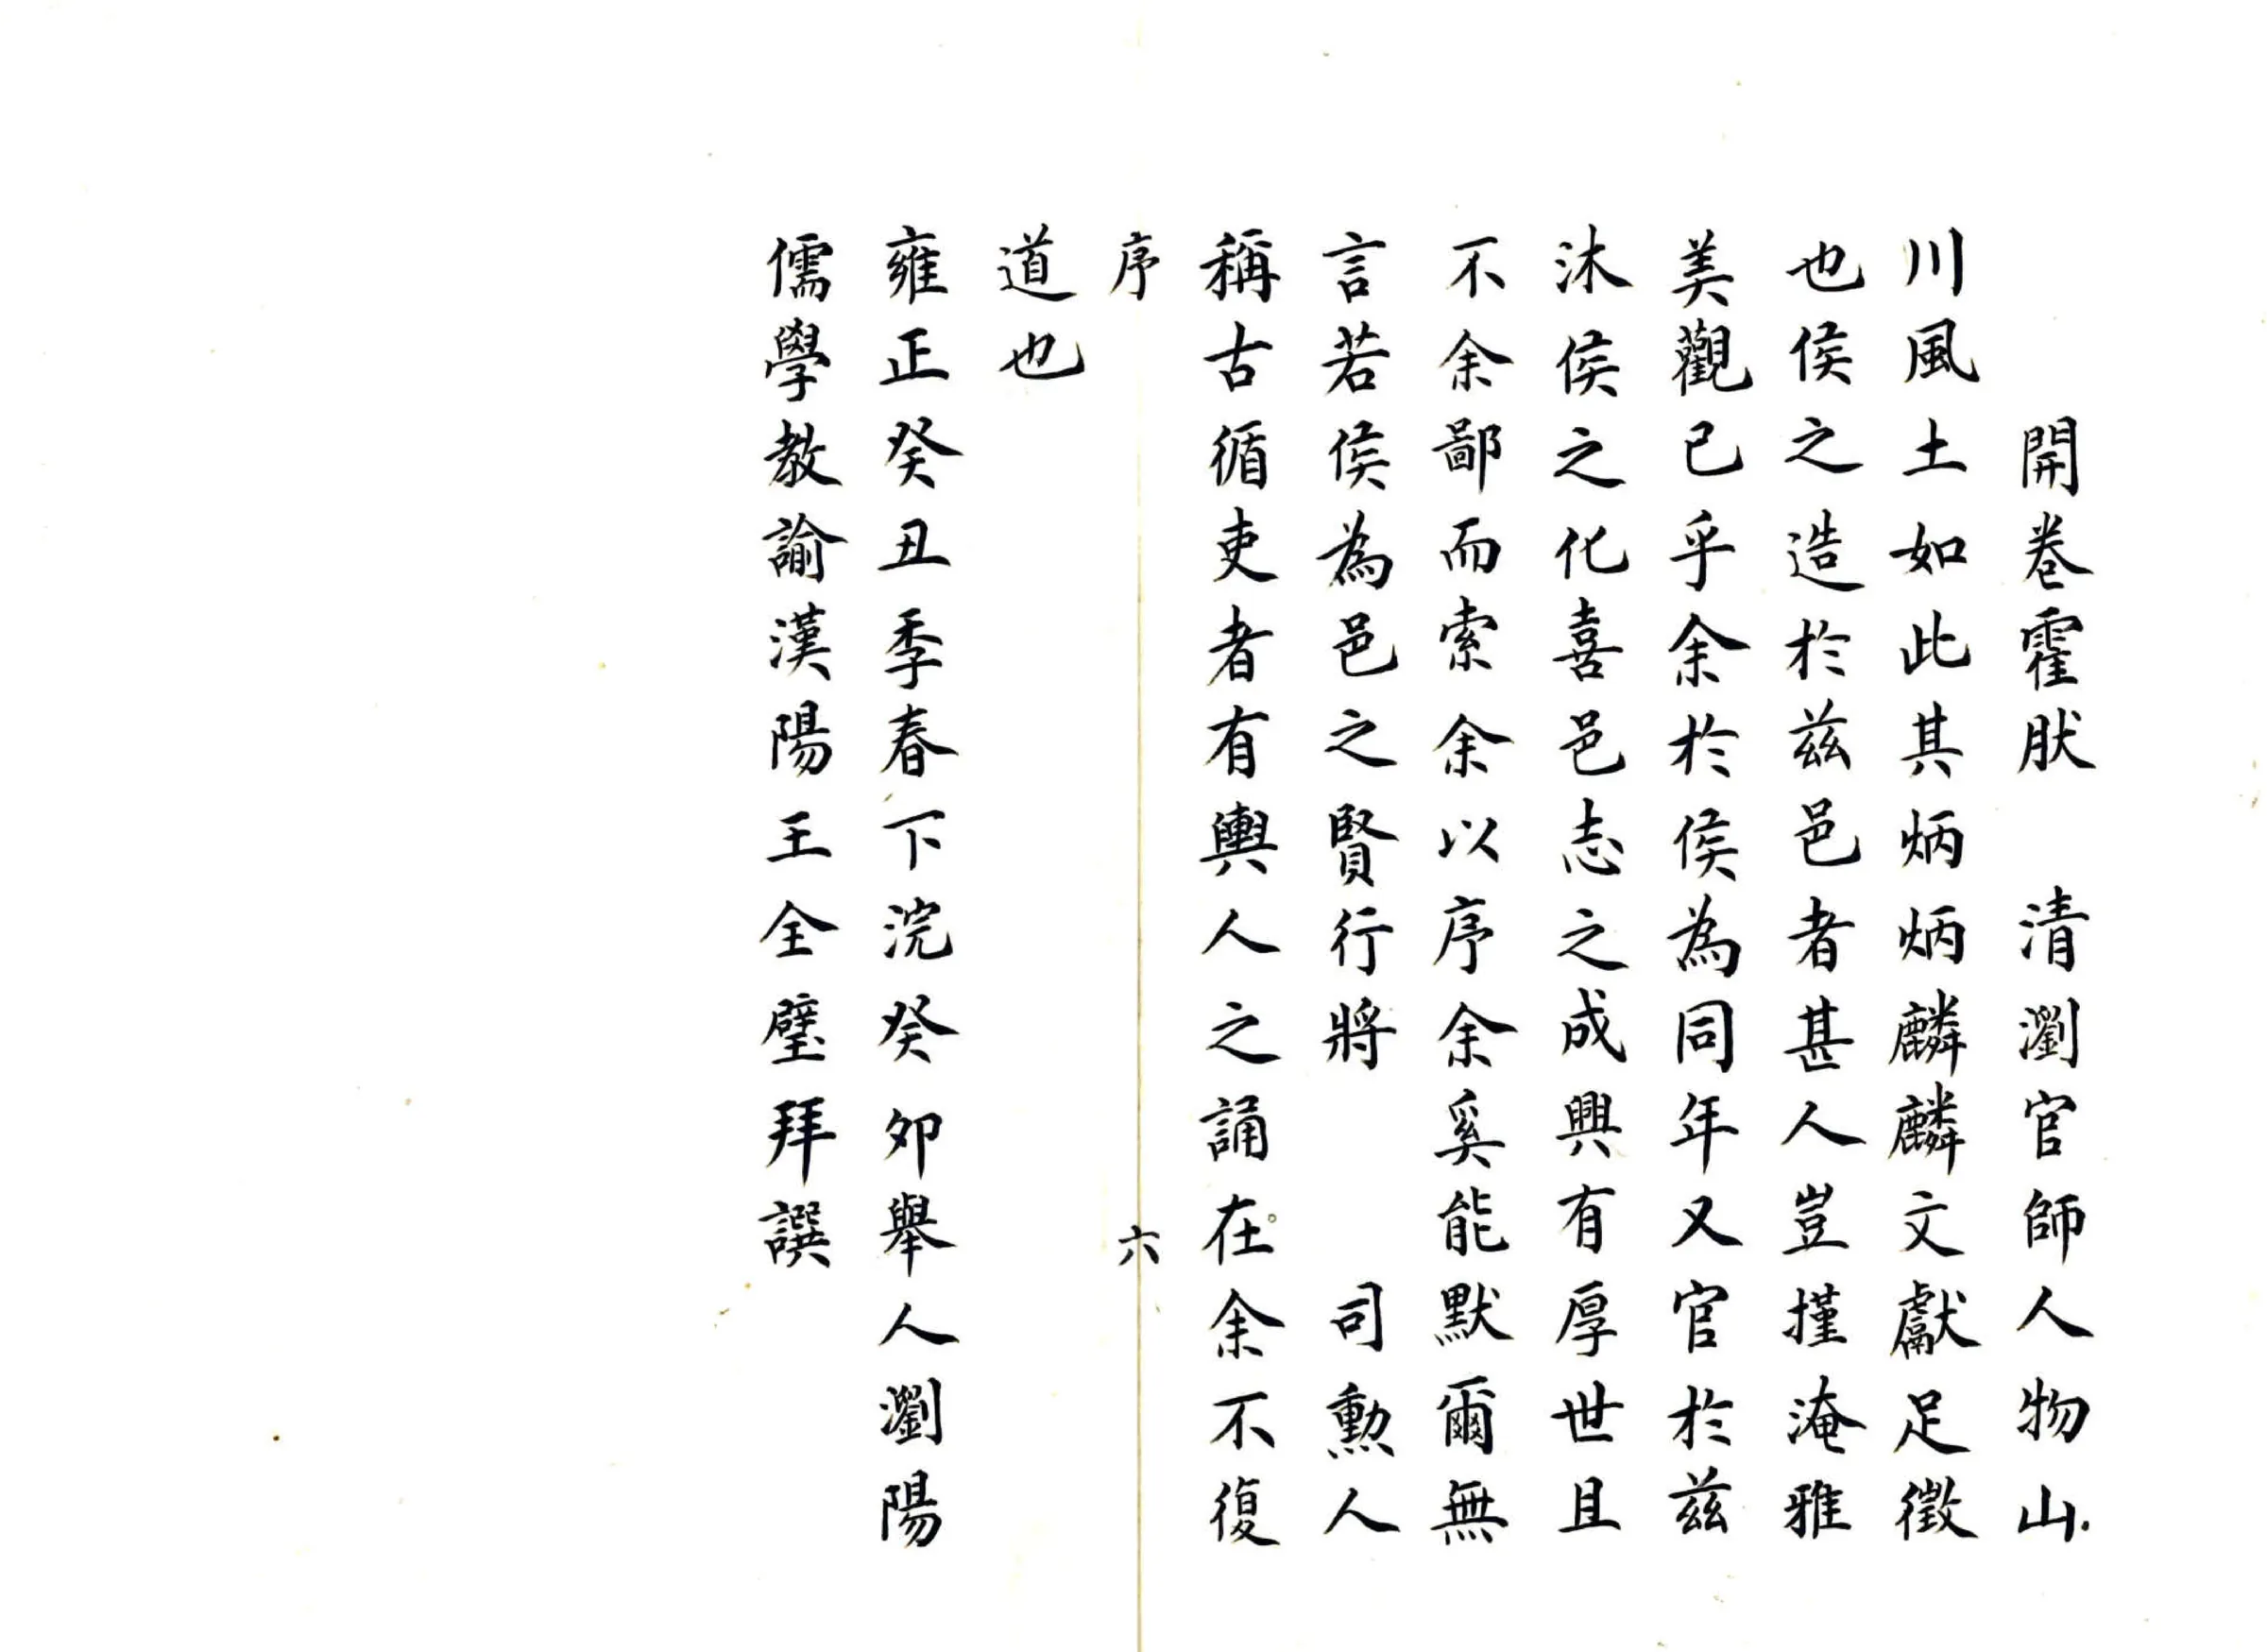 開卷霍肰　清瀏官師人物山
川風土如此其炳炳麟麟文獻足徵
也侯之造於兹邑者甚人豈墐淹雅
美觀已乎余於侯為同年又官於兹
沐侯之化喜邑志之成興有厚世且
不余鄙而索余以序余奚能默爾無
言若侯為邑之賢行將　司勳人
稱古循吏者有輿人之誦在余不復
序　六
道也
雍正癸丑季春下浣癸卯舉人瀏陽
儒學教諭漢陽王全璧拜譔